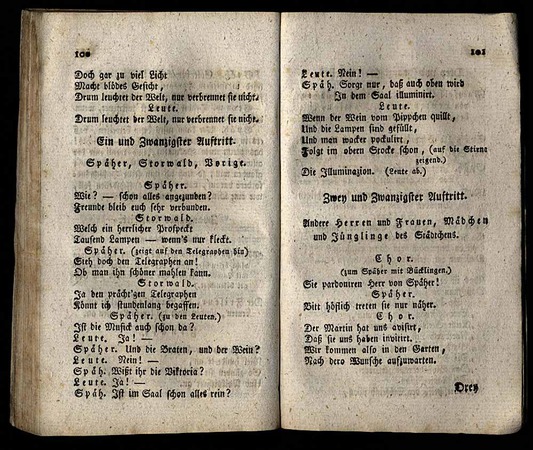 100
Doch gar zu viel Licht
Macht blödes Gesicht,
Drum leuchtet der Welt, nur verbrennet sie nicht.
Leute.
Drum leuchtet der Welt, nur verbrennet sie nicht.
Ein und Zwanzigster Auftritt.
Späher, Storwald, Vorige.
Späher.
Wie? — schon alles angezunden?
Freunde bleib euch sehr verbunden.
Storwald.
Welch ein herrlicher Prospeckt
Tausend Lampen — wenn's nur kleckt.
Späher. (zeigt auf den Telegraphen hin)
Sieh doch den Telegraphen an!
Ob man ihn schöner mahlen kann.
Storwald.
Ja den prächt'gen Telegraphen
Könnt ich stundenlang begaffen.
Späher. (zu den Leuten.)
Ist die Musick auch schon da?
Leute. Ja! —
Späher. Und die Braten, und der Wein?
Leute. Nein! —
Späh. Wißt ihr die Viktoria?
Leute. Ja! —
Späh. Ist im Saal schon alles rein?
101
Leute. Nein! —
Späh. Sorge nur, daß auch oben wird
In dem Saal illuminirt.
Leute.
Wenn der Wein vom Pippchen quillt,
Und die Lampen sind gefüllt,
Und man wacker pockulirt,
Folgt im obern Stocke schon, (auf die Stirne
zeigend.)
Die Illuminazion. (Leute ab.)
Zwey und Zwanzigster Auftritt.
Andere Herren und Frauen, Mädchen
und Jünglinge des Städtchens.
Chor.
(zum Späher mit Bücklingen.)
Sie pardoniren Herr von Späher!
Späher.
Bitt höflich treten sie nur näher.
Chor.
Der Martin hat uns avisirt,
Daß sie uns haben invitirt.
Wir kommen also in den Garten,
Nach dero Wunsche aufzuwarten.
Drey